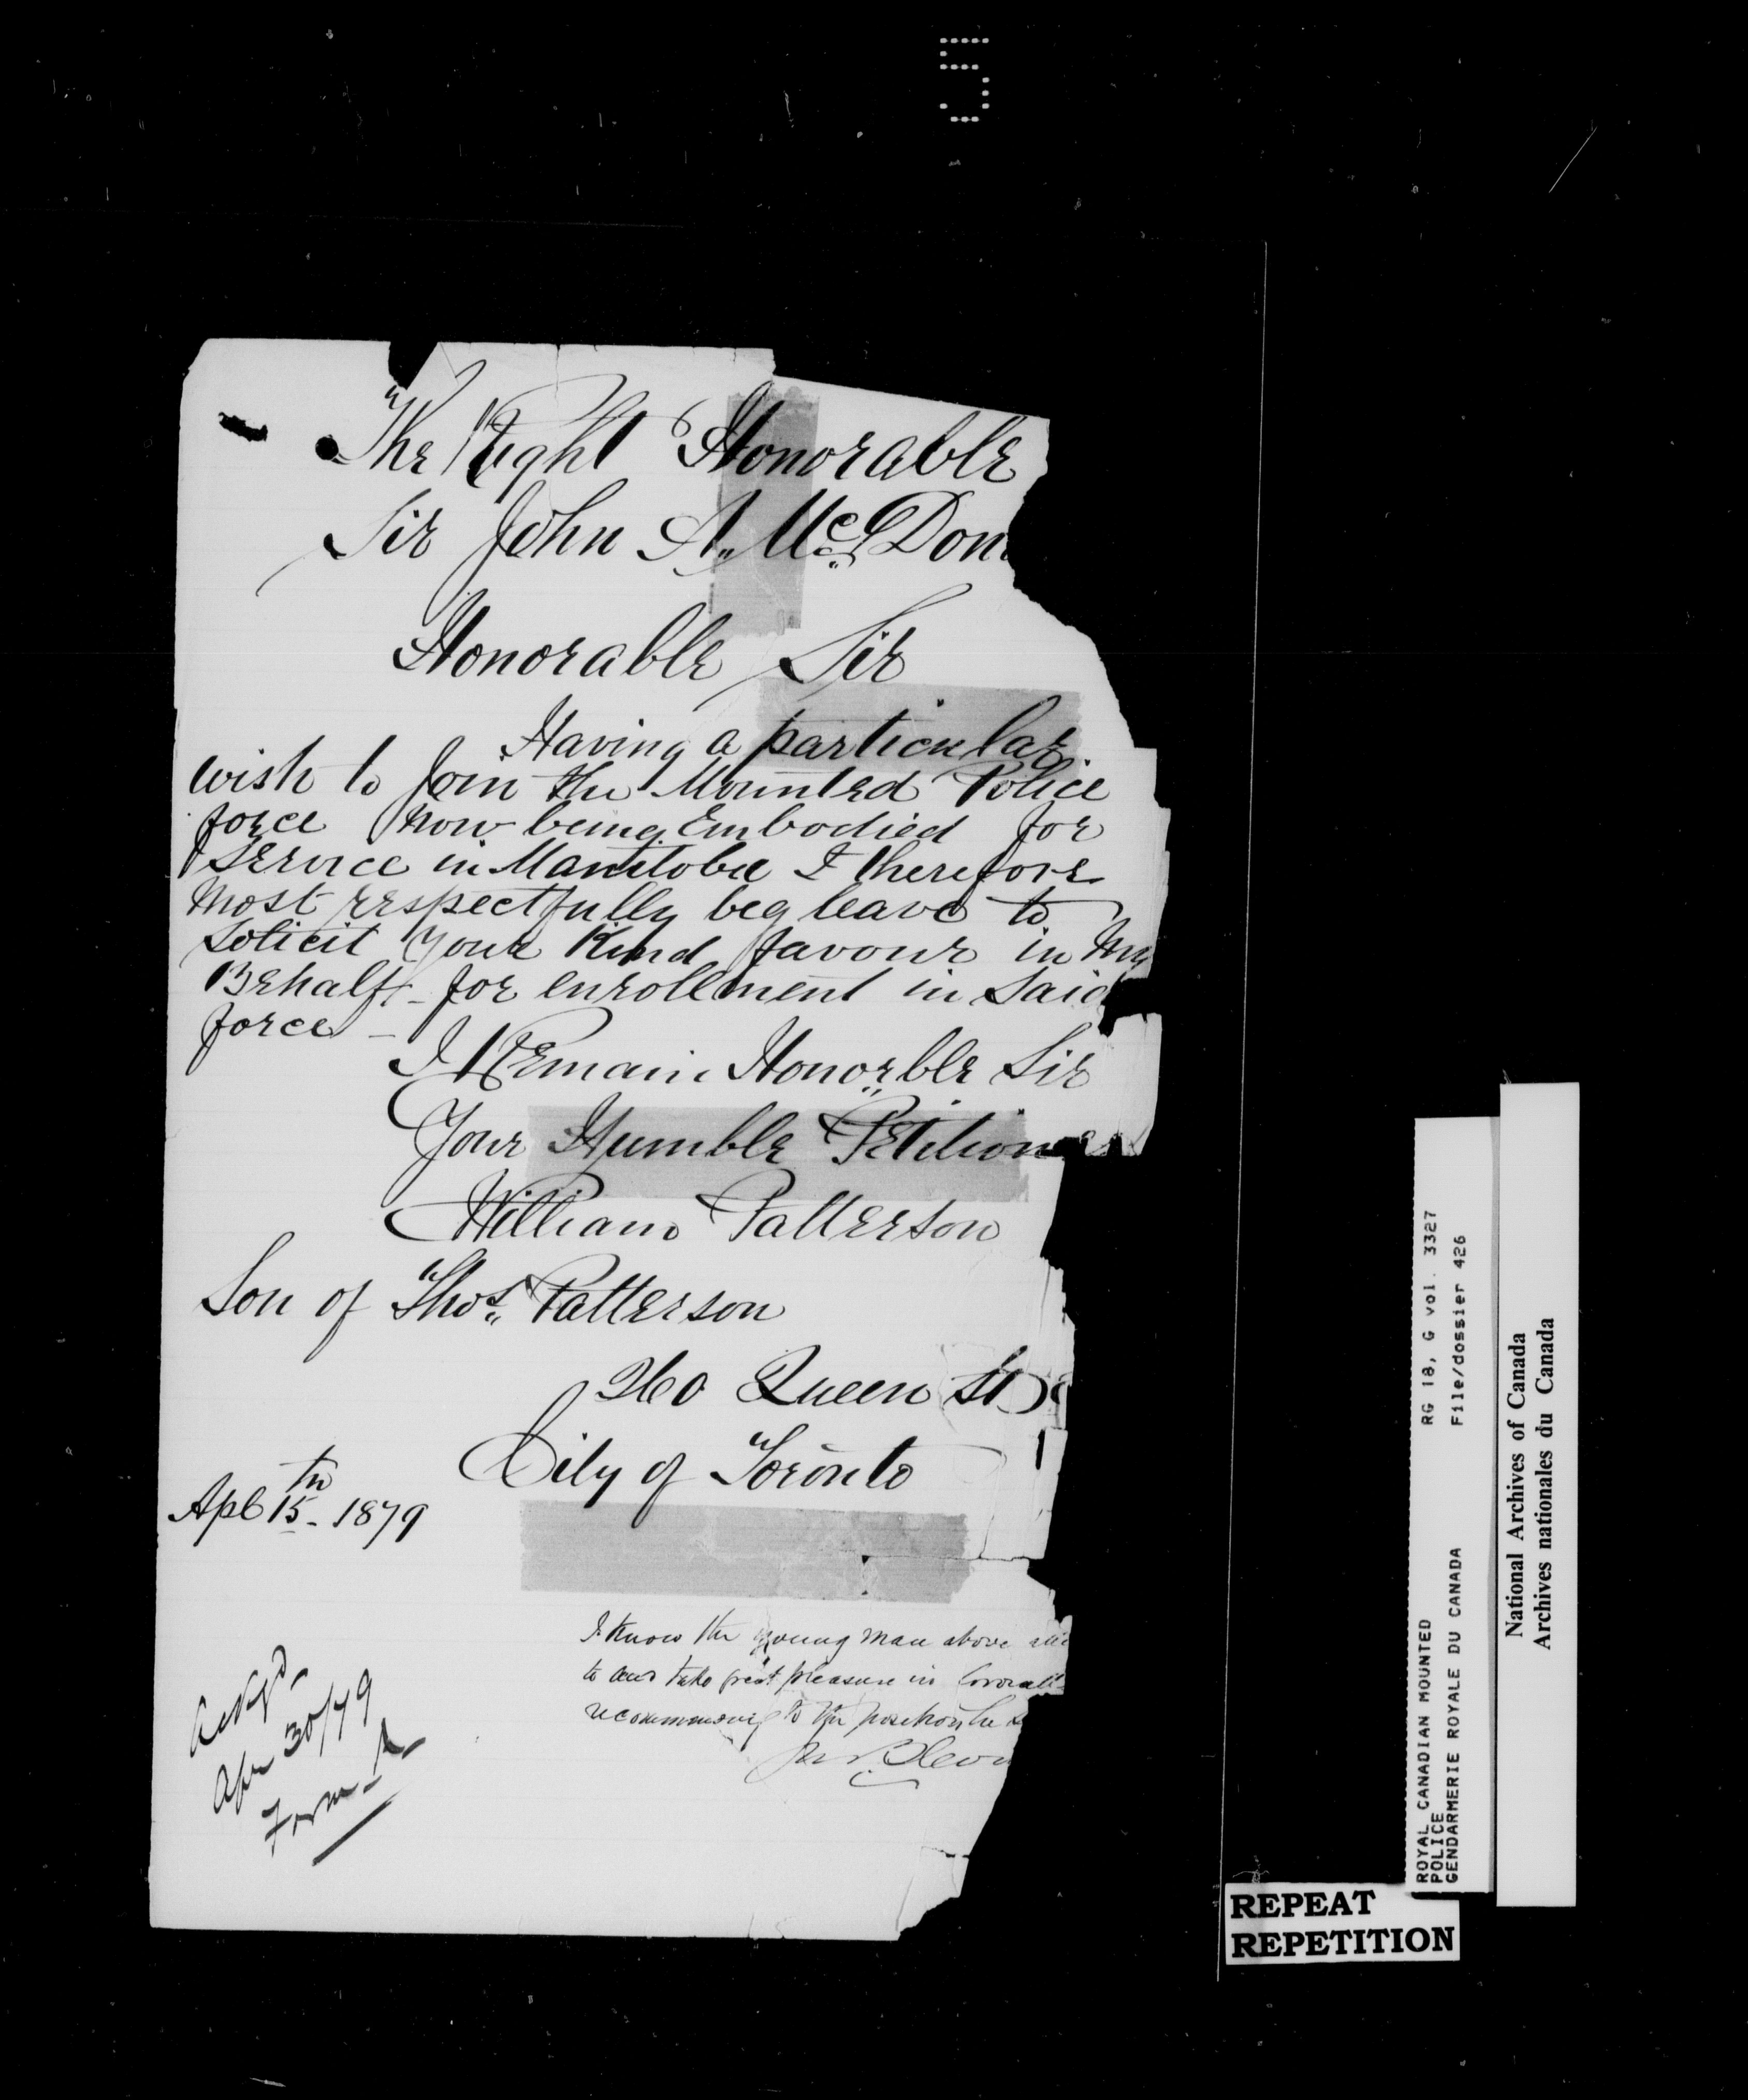 5
The Right Honorable
Sir John A. Mc Don
Honorable Sir
Having a particular
wish to Join the Mounted Police
force now being Embodied for
Service in Manitoba I therefore
most respectfully beg leave to
Solicit Your Kind favour in My
Behalf - for enrollment in Said
force -
I Remain Honorble Sir
Your Humble Petitioner
William Patterson
Son of Thos. Patterson
260 Queen St
City of Toronto
Apl 15th - 1879
I know the young man above
to and take great pleasure in
recommending to the position he
Ackgd
Apr 30/79
Form A
ROYAL CANADIAN MOUNTED RG 18, G vol. 3327
POLICE
GENDARMERIE ROYALE DU CANADA File/dossier 426
National Archives of Canada
Archives nationales du Canada
REPEAT
REPETITION